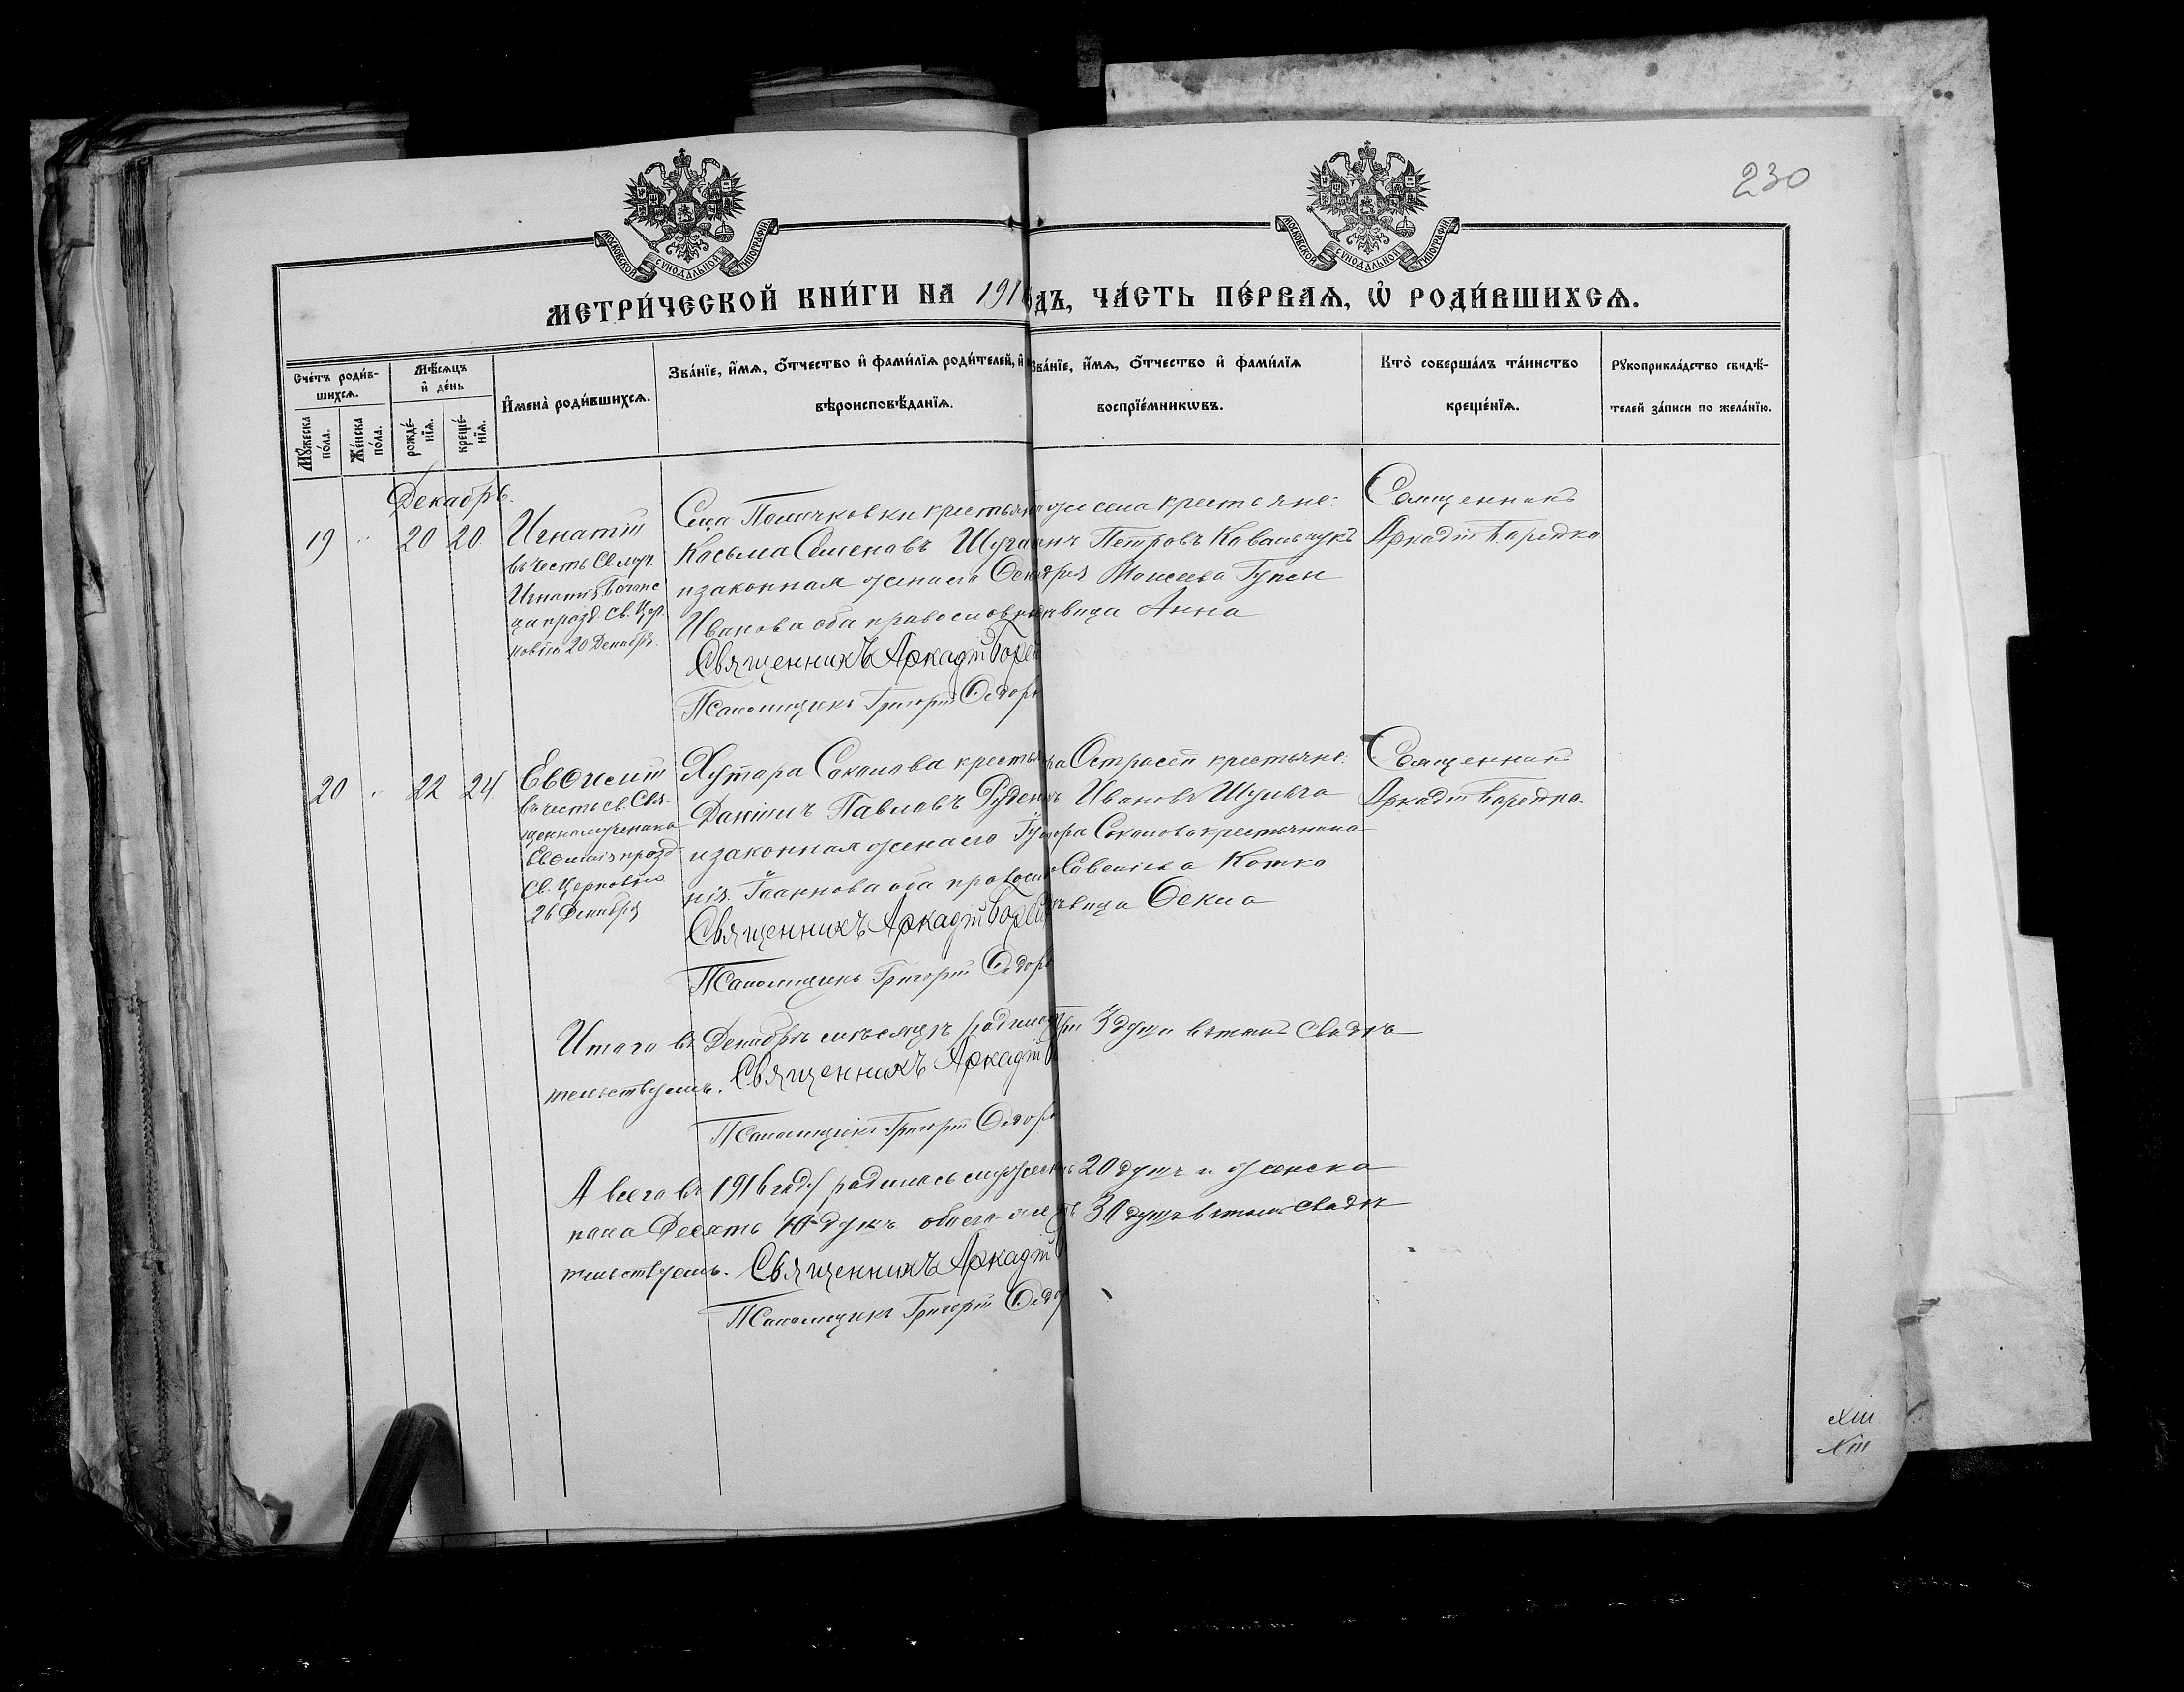 230
МОСКОВСКОЙ СѴНОДАЛЬНОЙ ТИПОГРАФІИ
МОСКОВСКОЙ СѴНОДАЛЬНОЙ ТИПОГРАФІИ
МЕТРИ́ЧЕСКОЙ КНИ́ГИ НА 191
ДЪ, ЧА́СТЬ ПЕ́РВАѦ, Ѡ҆ РОДИ́ВШИХСѦ.
Сче́тъ роди́в-
шихсѧ.
Мѣ́сѧцъ
и҆ де́нь
И҆мена̀ роди́вшихсѧ.
Зва́нїе, и҆́мѧ, ѻ҆́тчество и҆ фами́лїѧ роди́телей, и҆
вѣроисповѣ́данїѧ.
Зва́нїе, и҆́мѧ, ѻ҆́тчество и҆ фами́лїѧ
воспрїе́мникѡвъ.
Кто̀ соверша́лъ та́инство
креще́нїѧ.
Рꙋкоприкла́дство свидѣ́-
телей за́писи по жела́нїю.
Мꙋ́жеска
по́ла.
Же́нска
по́ла.
рожде́-
нїѧ.
креще́-
нїѧ.
Декабрь.
19 " 20 20
Игнатій
въ честь Св. муч.
Игнатія Богонос
ца празд. Св. Цер.
ковью 20 Декабря.
Села крестьян
Косьма Семеновъ
и законная жена его
Иванова оба православн
Священникъ Аркадій Боред
Псаломщикъ Григорій Ѳедоро
же села крестьяне:
Петровъ Ковальчукъ
Моисеева
вица Анна
Священникъ
Аркадій Боредко
20 " 22 24
Евѳимій
въ честь св. Свя-
щенномученика
Евѳимія празд
Св. Церковью
26 Декабря
Хутора Соколова крестья
Даніилъ Павловъ Руденк
и законная жена его
нія Іоаннова оба правосл
Священникъ Аркадій Боред
Псаломщикъ Григорій Ѳедоро
ра Острасей крестьяне:
Ивановъ Шульга
ра Соколова крестьянина
Савеліева Котко
вица Ѳекла
Священникъ
Аркадій Боредко.
Итого въ Декабрѣ мѣсяцѣ родилось три 3 души въ томъ свидѣ
тельствуемъ. Священникъ Аркадій
Псаломщикъ Григорій Ѳедоро
А всего въ 1916 году родилось мужеска 20 душъ и женска
пола Десять 10 душъ обоего 30 душъ въ томъ свидѣ
тельствуемъ. Священникъ Аркадій
Псаломщикъ Григорій Ѳедо
XIII
XIII